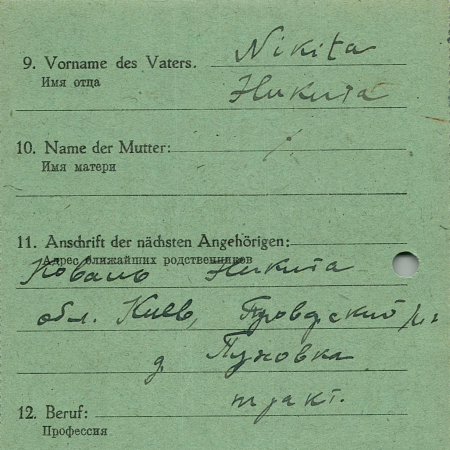 Nikita
9. Vorname des Vaters.
Имя отца
Никита
10. Name der Mutter:
Имя матери
11. Anschrift der nächsten Angehörigen:
Адрес ближайших родственников
Коваль Никита
обл. Киев,
д Пуховка
12. Beruf:
тракт.
Профессия